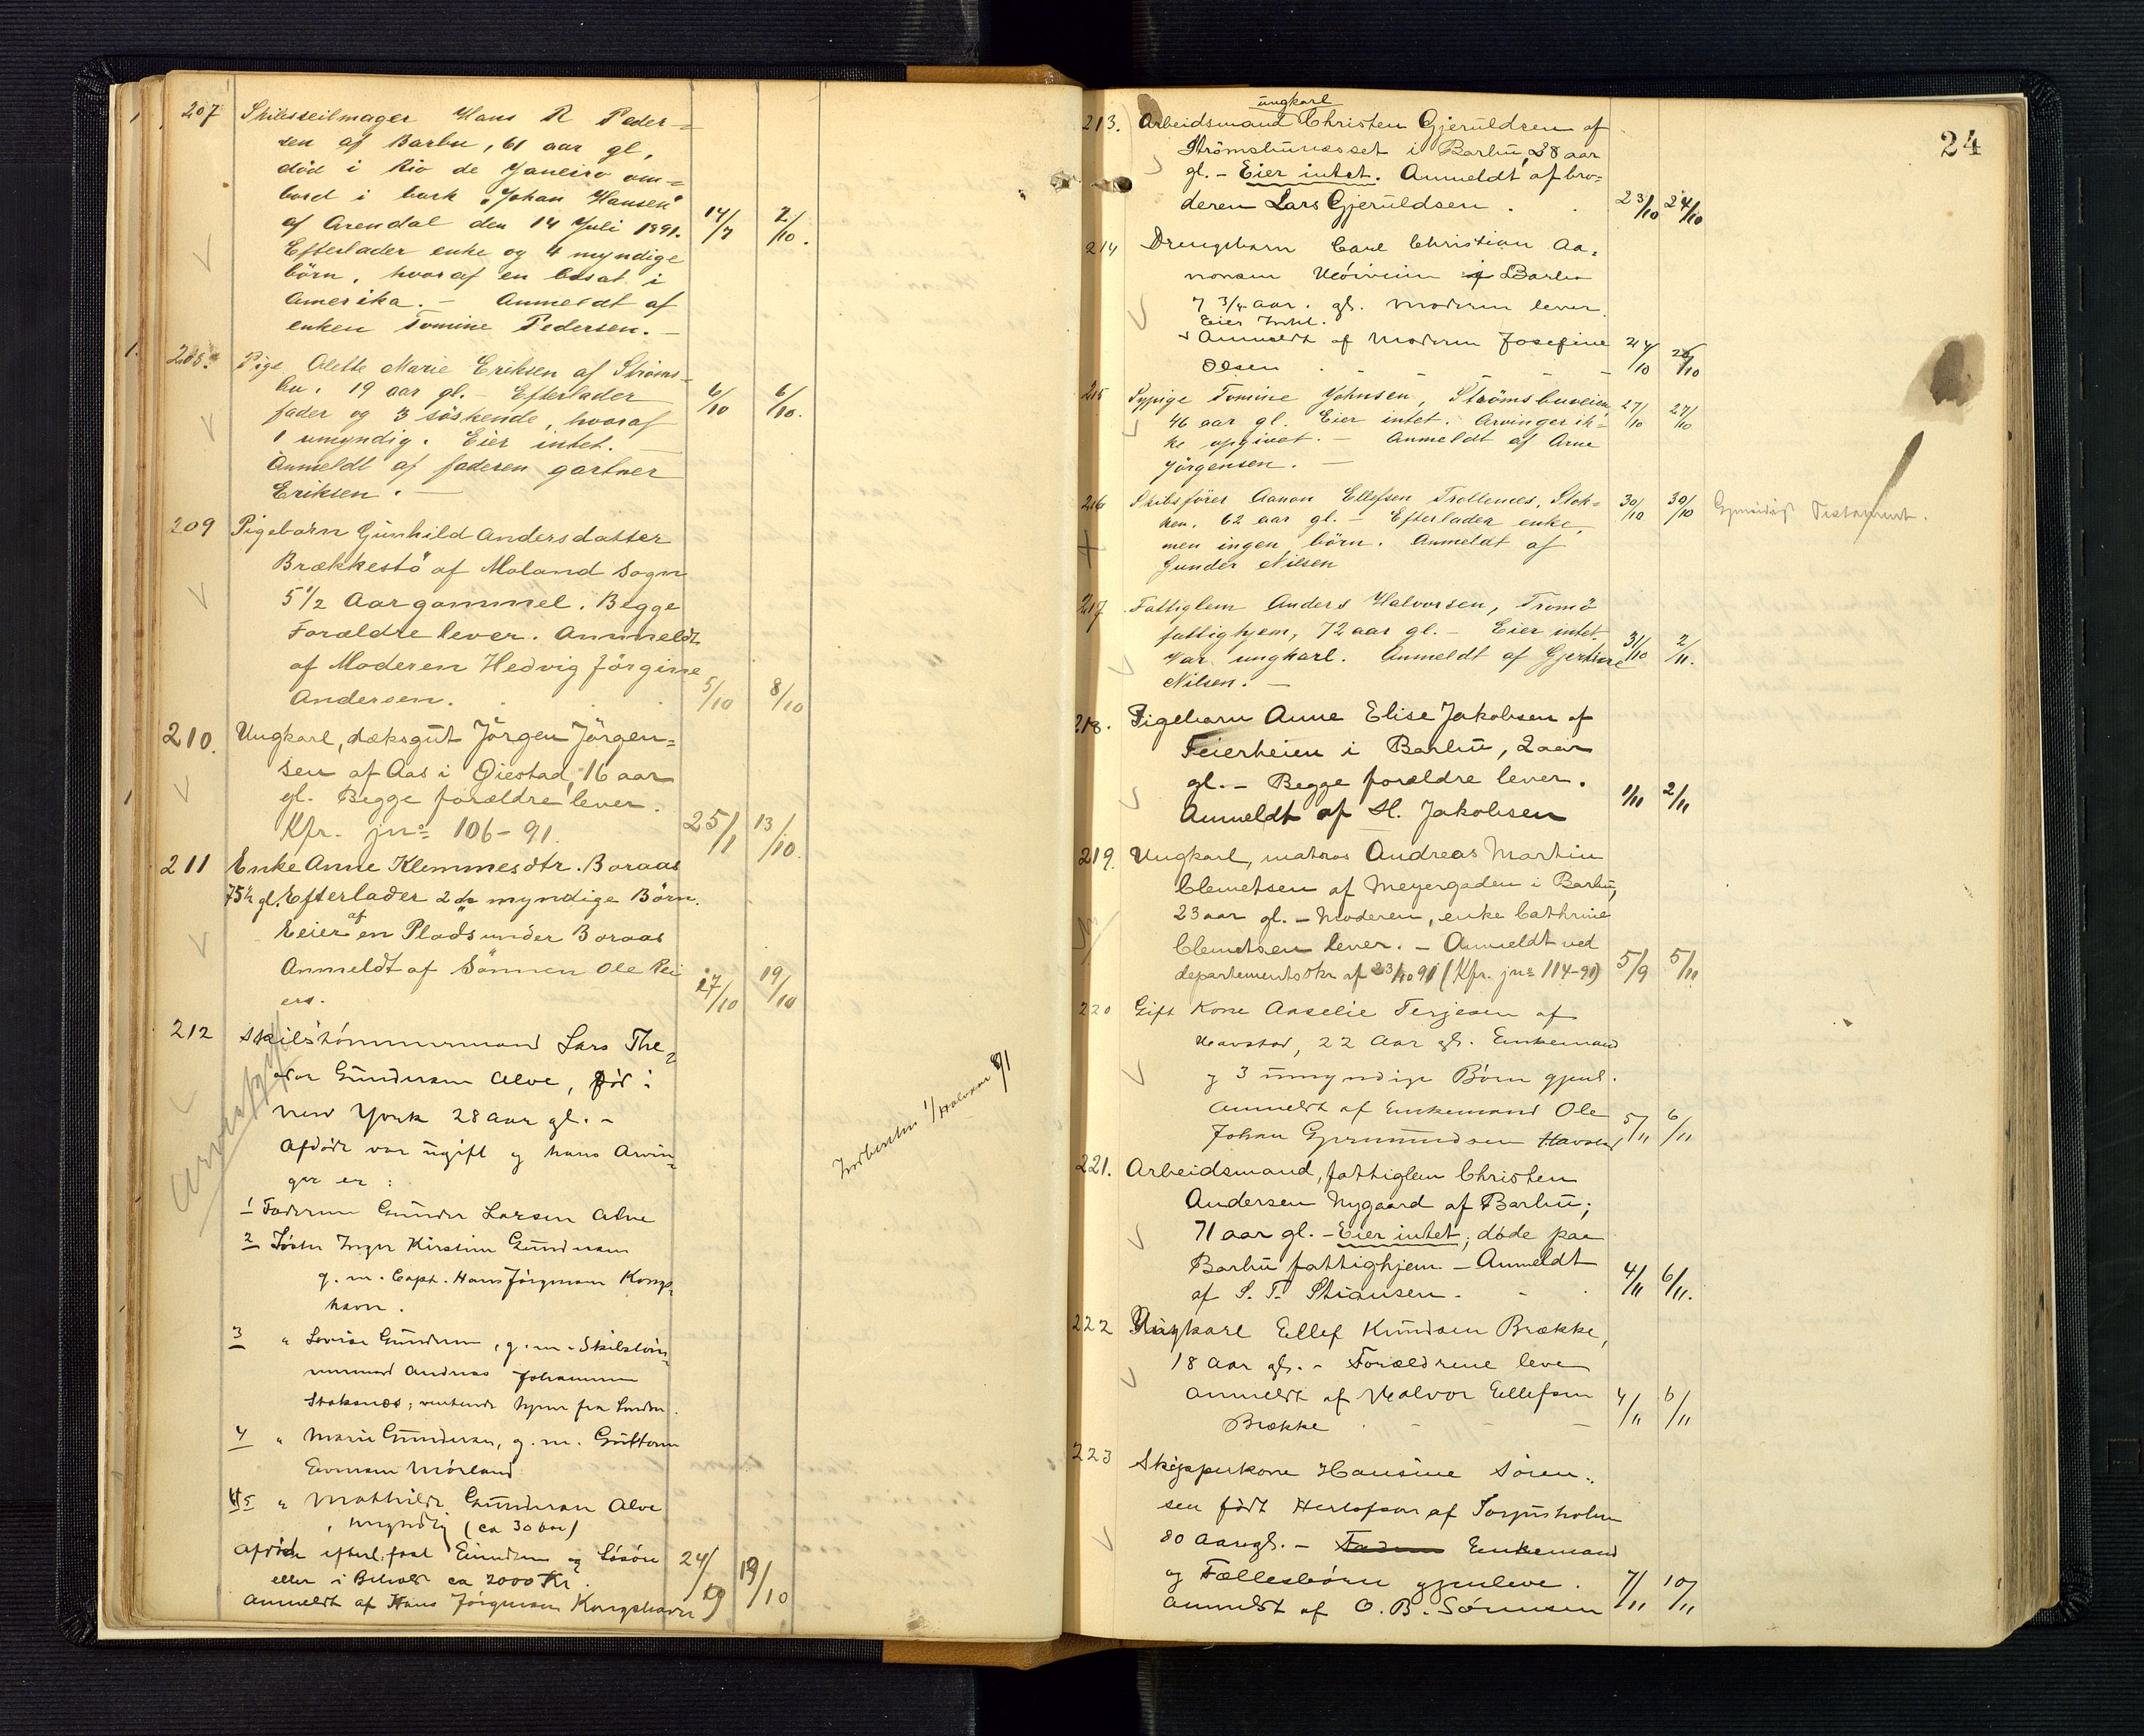 207 Skibsseilmager Hans R Peder=
sen af Barbu, 61 aar gl,
död i Rio de Janeiro om=
bord i bark "Johan Hansen"
af Arendal den 14 Juli 1891. 14/7 2/10.
Efterlader enke og 4 myndige
börn, hvoraf en bosat i
Amerika. — Anmeldt af
enken Tomine Pedersen. —
208 Pige Alette Marie Eriksen af Ströms-
bu. 19 aar gl. — Efterlader 6/10 6/10.
fader og 3 söskende, hvoraf
1 umyndig. Eier intet. —
Anmeldt af faderen gartner
Eriksen. —
209 Pigebarn Gunhild Andersdatter
Brækkestö af Moland Sogn
5 1/2 Aar gammel. Begge
Forældre lever. Anmeldt
af Moderen Hedvig Jörgine
Andersen. 5/10 8/10
210. Ungkarl, dæksgut Jörgen Jörgen=
sen af Aas i Øiestad, 16 aar
gl. Begge forældre lever.
Kfr. jno 106-91. 25/1 13/10.
211 Enke Anne Klemmesdtr. Boraas
75 1/2 gl. Efterlader 2 myndige Börn.
Eeier af en Plads under Boraas
Anmeldt af Sönnen Ole Rei
ers. 17/10 19/10
212 Skibstömmermand Lars The=
odor Gundersen Alve, död i
New York 28 aar gl. -
Afdöde var ugift og hans Arvin-
ger er:
1 Faderen Gunder Larsen Alve
2 Söster Inger Kirstine Gundersen
g. m. Capt. Hans Jörgensen Kongs-
havn.
3 " Lovise Gundersen, g. m. Skibstöm-
mermand Andreas Johannesen
Stoksnæs; ventende hjem fra London.
4 " Marie Gundersen, g. m. Guttorm
Evensen Mörland
5 " Mathilde Gundersen Alve
" myndig (ca 30 aar)
Afdöde efterl. fast Eiendom og Lösöre
eller i Behold ca 2000 Kr. 24/9 19/10
Anmeldt af Hans Jörgensen Kongshavn
24
ungkarl
213. Arbeidsmand Christen Gjeruldsen af
Strömsbunæsset i Barbu, 28 aar
gl. - Eier intet. Anmeldt af bro=
deren Lars Gjeruldsen. 23/10 24/10
214 Drengebarn Carl Christian Aa-
nonsen i Barbu
7 3/4 aar. gl. Moderen lever.
Eier Intet.
Anmeldt af Moderen Josefine 24/10 26/10
Olsen
215 Sypige Tomine Johnsen, Strömsbuveien, 27/10 27/10
46 aar gl. Eier intet. Arvinger ik=
ke opgivet. — Anmeldt af Arne
Jörgensen. —
216 Skibsförer Aanon Ellefsen Trollenes, Stok= 30/10 30/10 Testament.
ken, 62 aar gl. - Efterlader enke,
men ingen börn. Anmeldt af
Gunder Nilsen
217. Fattiglem Anders Halvorsen, Tromö
fattighjem, 72 aar gl. - Eier intet. 31/10 2/11.
Var ungkarl. Anmeldt af Gjertine
Nilsen. —
218. Pigebarn Anne Elise Jakobsen af
Feierheien i Barbu, 2 aar
gl. - Begge forældre lever.
Anmeldt af H. Jakobsen 1/11 2/11
219. Ungkarl, matros Andreas Martin
Clemetsen af Meyergaden i Barbu,
23 aar gl. - Moderen, enke Cathrine
Clemetsen lever. - Anmeldt ved
departementsskr. af 23/10 91 (Kfr. jno 114-91) 5/9 5/11.
220 Gift Kone Anselie Terjesen af
Havstad, 22 Aar gl. Enkemand
og 3 umyndige Börn gjenl.
Anmeldt af Enkemand Ole
Johan Gjermundsen Havstad 5/11 6/11
221. Arbeidsmand, fattiglem Christen
Andersen Nygaard af Barbu;
71 aar gl. - Eier intet; döde paa
Barbu fattighjem - Anmeldt
af S. T. Stiansen. 4/11 6/11.
222 Ungkarl Ellef Knudsen Brække,
18 Aar gl. - Forældrene lever
Anmeldt af Halvor Ellefsen 4/11 6/11
Brække
223 Skipperkone Hansine Sören-
sen födt Herlofson af Torjusholmen
80 Aar gl. - Enkemand
og Fællesbörn gjenlever. 7/11 10/11
Anmeldt af O. B. Sörensen